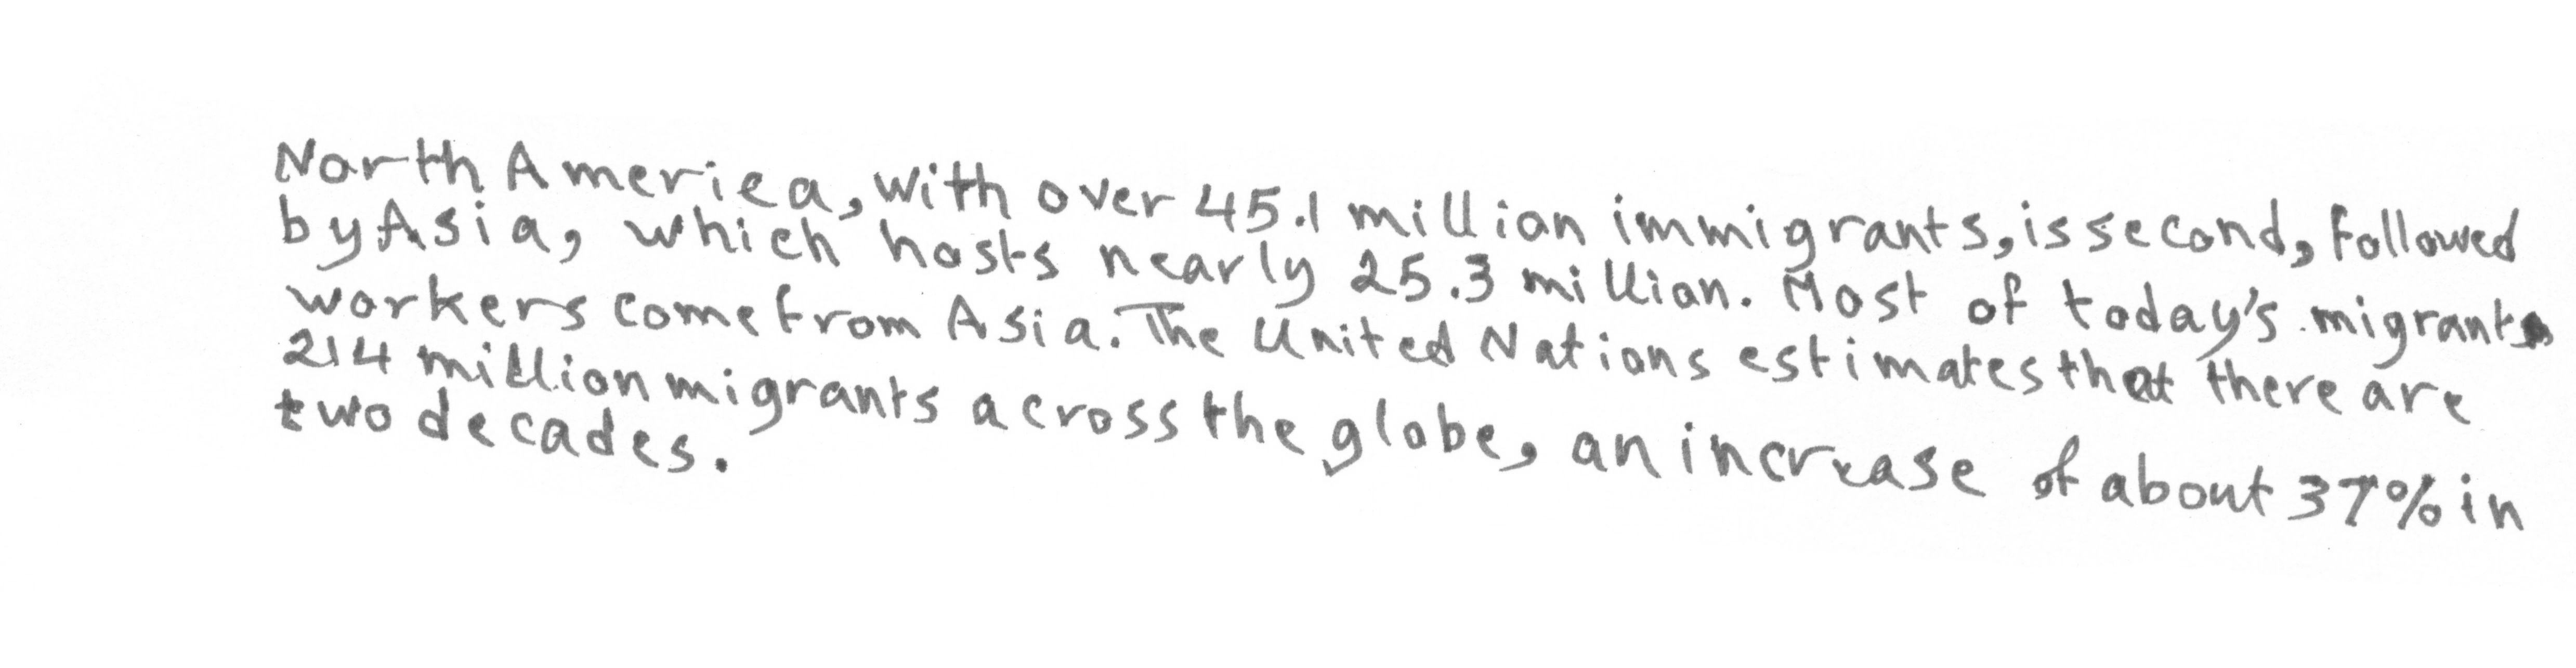 North America, with over 45.1 million immigrants, is second, followed
by Asia, which hosts nearly 25.3 million. Most of today's migrants
workers come from Asia. The United Nations estimates that there are
214 million migrants across the globe, an increase of about 37% in
two decades.